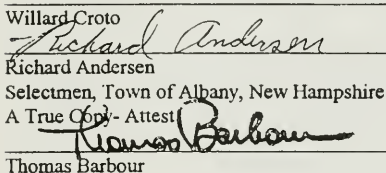 Willard Croto
Richard Andersen
Richard Andersen
Selectmen, Town of Albany, New Hampshire
A True Copy- Attest
Thomas Barbour
Thomas Barbour